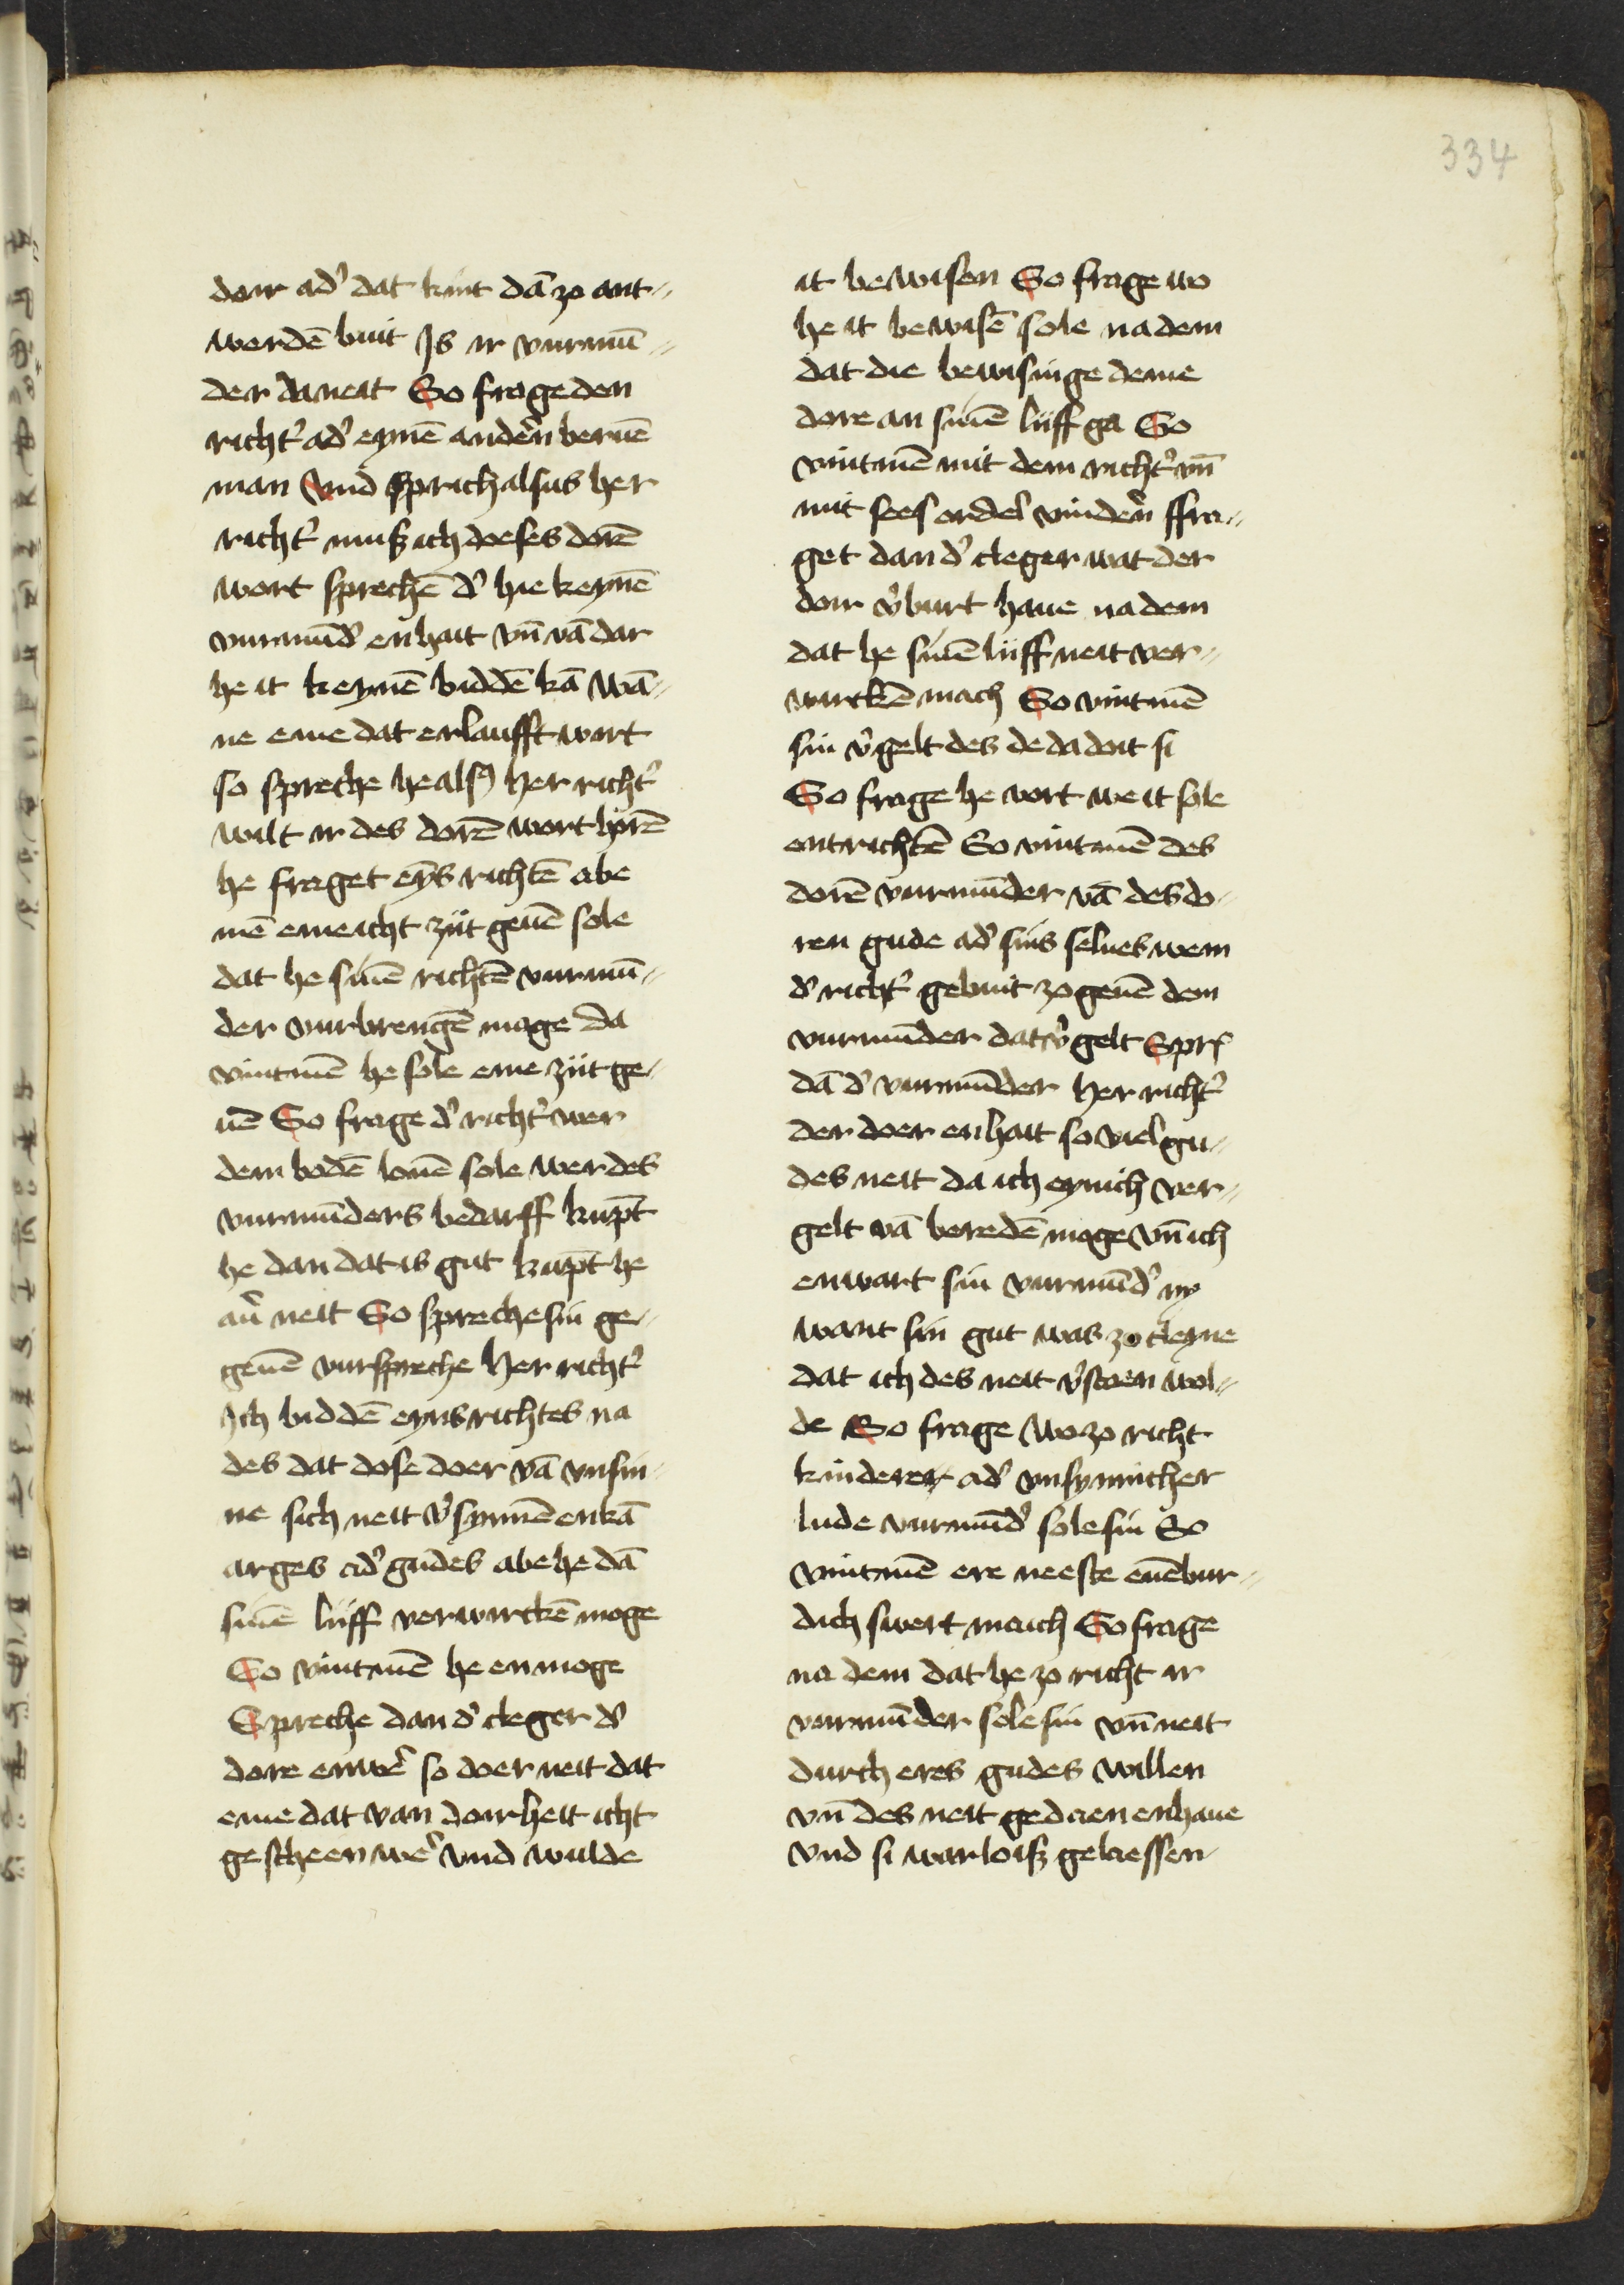 334
doir adʼ dat kint dā zo ant⸗
werdē buit Js ir vurmū⸗
der da neit So frage den
richtʼ adʼ eynē anderʼn beruē
man Vnd sprich alsus her
richtʼ muß ich deses dorē
wort sprechē dʼ hie keynē
vurmūdʼ en hait vn̄ vā dar
he it keynē biddē kā wā⸗
ne eme dat erlaufft wirt
so spreche he alsꝰ her richtʼ
wilt ir des dorē wort hirē
he fraget eyns richtē abe
mē eme icht zijt geuē sole
dat he sinē richtē vurmū⸗
der vurbrengē moge da
vintmē he sole eme zijt ge⸗
uē So frage dʼ richtʼ wer
dem bodē lonē sole wer des
vurmūders bedarff kūpt
he dan dat is gut kūpt he
auʼ neit So spreche sin ge⸗
geuē vurspreche Her richtʼ
Jch biddē eyns richtes na
des dat dose doer vā vnsin⸗
ne sich neit vʼsynnē en kā
arges adʼ gudes abe he dā
sinē lijff verwirckē moge
So vintmē he en moge
Spreche dan dʼ cleger dʼ
dore enwerʼ so doer neit dat
eme dat van doirheit icht
gescheen werʼ vnd wulde
it bewisen So frage wo
he it bewisē sole na dem
dat die bewisinge deme
dore an sinē lijff ga So
vintmē mit dem richtʼ vn̄
mit sees ordel vinderʼn ffra⸗
get dan dʼ cleger wat der
doir vʼburt haue na dem
dat he sinē lijff neit ver⸗
wirckē mach So vintmē
sin vʼgelt des de da doit si
So frage he vort we it sole
entrichtē So vintmē des
dorē vurmūder vā des do⸗
ren gude adʼ sins selues wem
dʼ richtʼ gebuit zo geuē dem
vurmūder dat vʼgelt Sprꝭ
dā dʼ vurmūder her richtʼ
der doer en hait so viel gu⸗
des neit da ich eynich ver⸗
gelt vā beredē moge vn̄ ich
enwart sin vurmūdʼ ny
want sin gut was zo cleyne
dat ich des neit vʼstoen wol⸗
de So frage wo zo richt
kinderer adʼ vnsynnicher
lude vurmūdʼ sole sin So
vintmē ere neeste euēbur⸗
dich swert maich So frage
na dem dat he zo richt ir
vurmūder sole sin vn̄ neit
durch eres gudes willen
vn̄ des neit gedaen enhaue
vnd si warloiß gelaessen